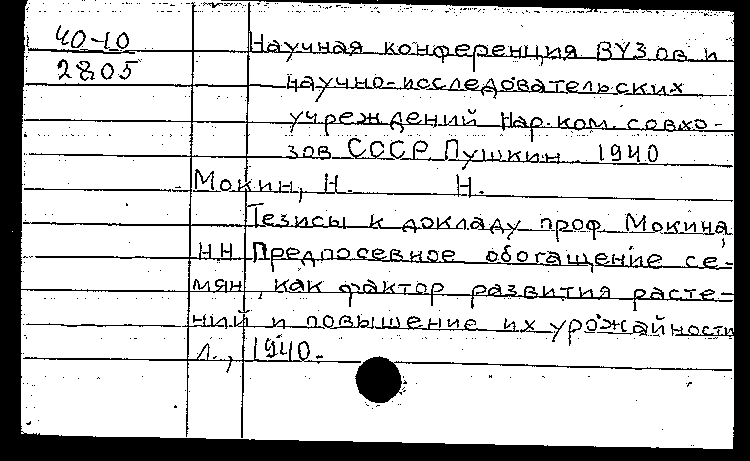 40-10
2805
Научная конференция ВУЗов и
научно-исследовательских
учреждений Нар.ком. совхо-
зов СССР. Пушкин. 1940
Мокин, Н. Н.
Тезисы к докладу проф. Мокина,
Н.Н. Предпосевное обогащение се-
мян, как фактор развития расте-
ний и повышение их урожайности
Л., 1940.